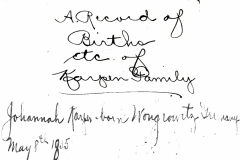 A Record of
Births
etc. of
Karpen Family
Johannah Karpen born Wongrowitz Germany
May 8th 1805